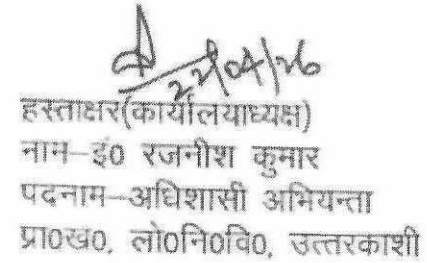 22/04/26
हस्ताक्षर(कार्यालयाध्यक्ष)
नाम-इं0 रजनीश कुमार
पदनाम-अधिशासी अभियन्ता
प्रा0ख0, लो0नि0वि0, उत्तरकाशी